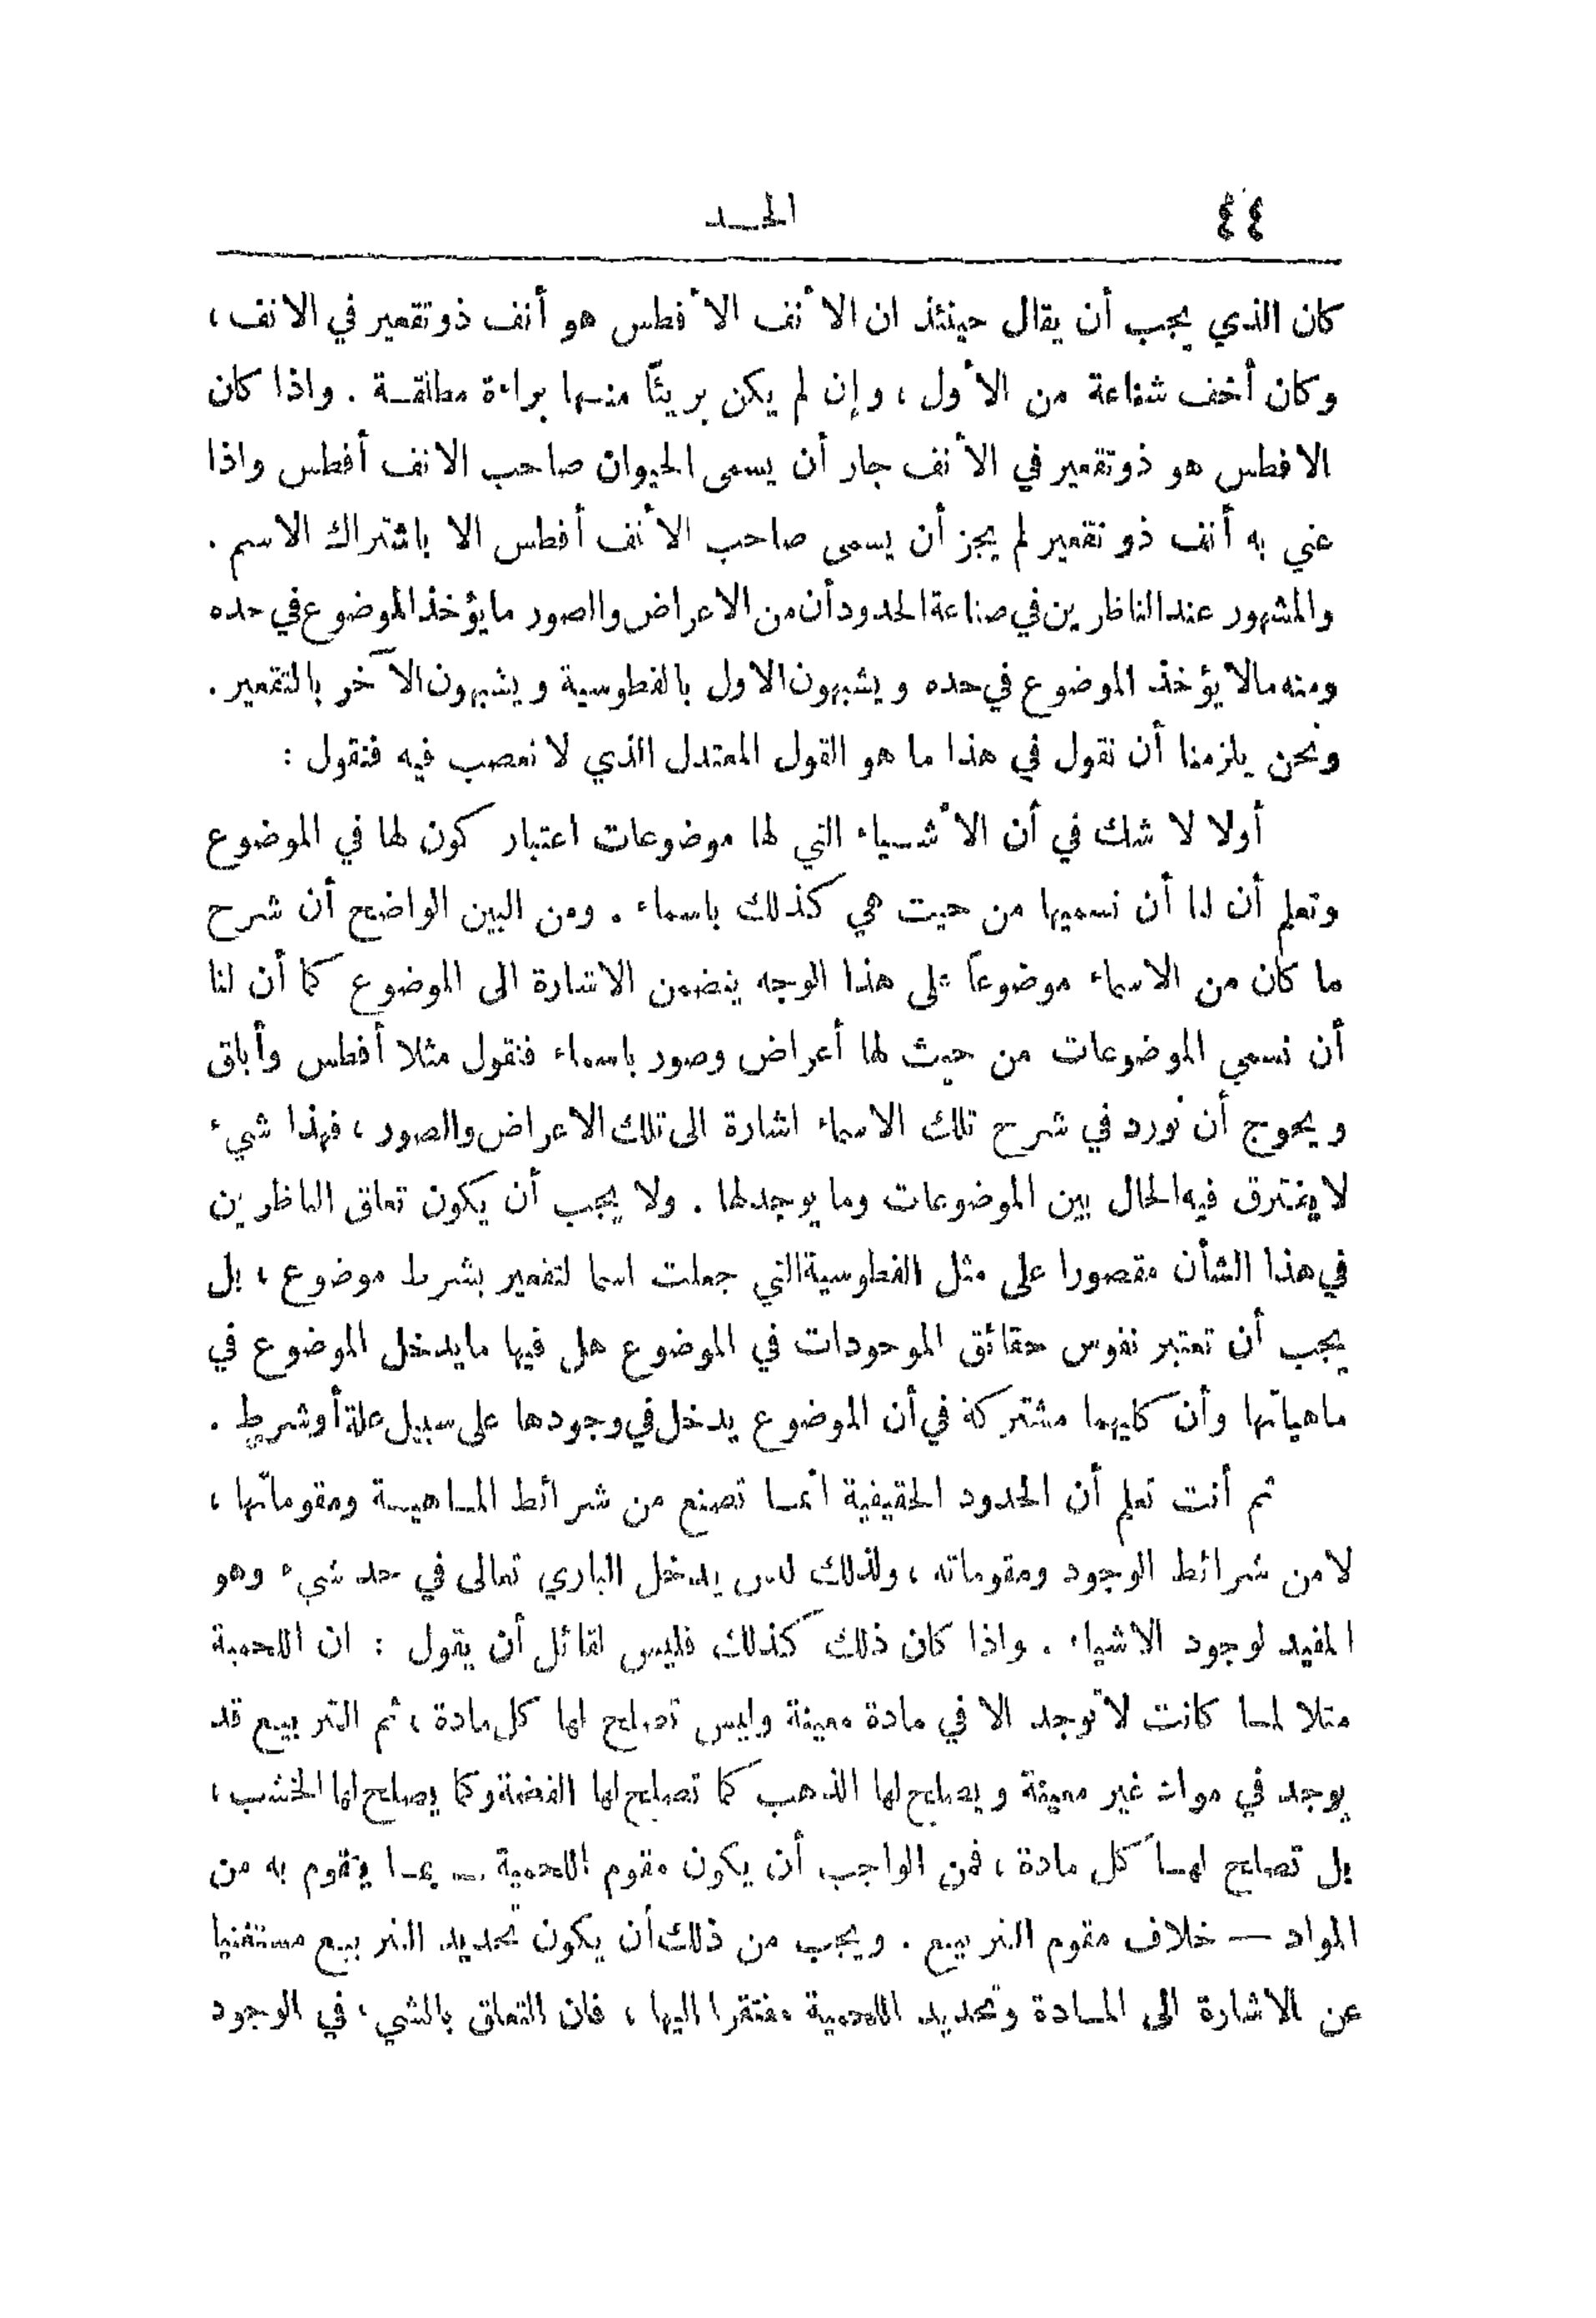 ٤٤ الحـد
كان الذي يجب أن يقال حينئذ ان الأنف الأفطس هو أنف ذوتقعير في الانف ،
وكان أخف شناعة من الأول ، وإن لم يكن بريئًا منها براءة مطلقة . واذا كان
الافطس هو ذوتقعير في الأنف جار أن يسمى الحيوان صاحب الانف أفطس واذا
عني به أنف ذو تقعير لم يجز أن يسمى صاحب الأنف أفطس الا باشتراك الاسم .
والمشهور عند الناظرين في صناعة الحدود أن من الاعراض والصور ما يؤخذ الموضوع في حده
ومنه مالا يؤخذ الموضوع في حده ويشبهون الاول بالفطوسية ويشبهون الآخر بالتقعير .
ونحن يلزمنا أن نقول في هذا ما هو القول المعتدل الذي لا نعصب فيه فنقول :
أولا لا شك في أن الأشياء التي لها موضوعات اعتبار كون لها في الموضوع
وتعلم أن لنا أن نسميها من حيت هي كذلك باسماء . ومن البين الواضح أن شرح
ما كان من الاسماء موضوعاً على هذا الوجه يتضمن الاشارة الى الموضوع كما أن لنا
أن نسمي الموضوعات من حيث لها أعراض وصور باسماء فنقول مثلا أفطس وأبلق
ويحوج أن نورد في شرح تلك الاسماء اشارة الى تلك الاعراض والصور ، فهذا شيء
لا يفترق فيه الحال بين الموضوعات وما يوجد لها . ولا يجب أن يكون تعلق الناظرين
في هذا الشأن مقصورا على مثل الفطوسية التي جعلت اسما لتقعير بشرط موضوع ، بل
يجب أن تعتبر نفوس حقائق الموجودات في الموضوع هل فيها مايدخل الموضوع في
ماهياتها وأن كليهما مشتركة في أن الموضوع يدخل في وجودها على سبيل علة أو شرط .
ثم أنت تعلم أن الحدود الحقيقية انما تصنع من شرائط الماهية ومقوماتها ،
لا من شرائط الوجود ومقوماته ، ولذلك ليس يدخل الباري تعالى في حد شيء وهو
المفيد لوجود الاشياء . واذا كان ذلك كذلك فليس لقائل أن يقول : ان اللحمية
مثلا لما كانت لا توجد الا في مادة معينة وليس تصلح لها كل مادة ، ثم التربيع قد
يوجد في مواد غير معينة ويصلح لها الذهب كما تصلح لها الفضة وكما يصلح لها الخشب ،
بل تصلح لها كل مادة ، فمن الواجب أن يكون مقوم اللحمية ـ بما يتقوم به من
المواد — خلاف مقوم التربيع . ويجب من ذلك أن يكون تحديد التربيع مستغنيا
عن الاشارة الى المادة وتحديد اللحمية مفتقرا اليها ، فان التعلق بالشيء في الوجود